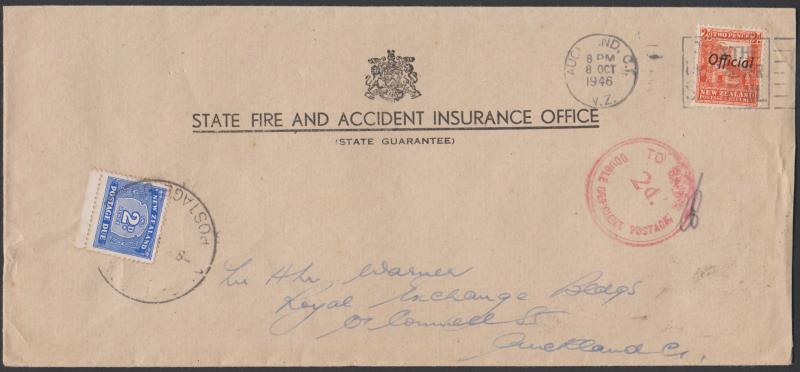 AUCKLAND. C.1.
8 PM
8 OCT
1946
N.Z.
2d TWO PENCE 2d
Official
NEW ZEALAND
STATE FIRE AND ACCIDENT INSURANCE OFFICE
(STATE GUARANTEE)
TO
2d.
DOUBLE DEFICIENT POSTAGE
POSTAGE
NEW ZEALAND
2D.
POSTAGE DUE
Warner
Royal Exchange Bldgs
O'Connell St
Auckland C1.